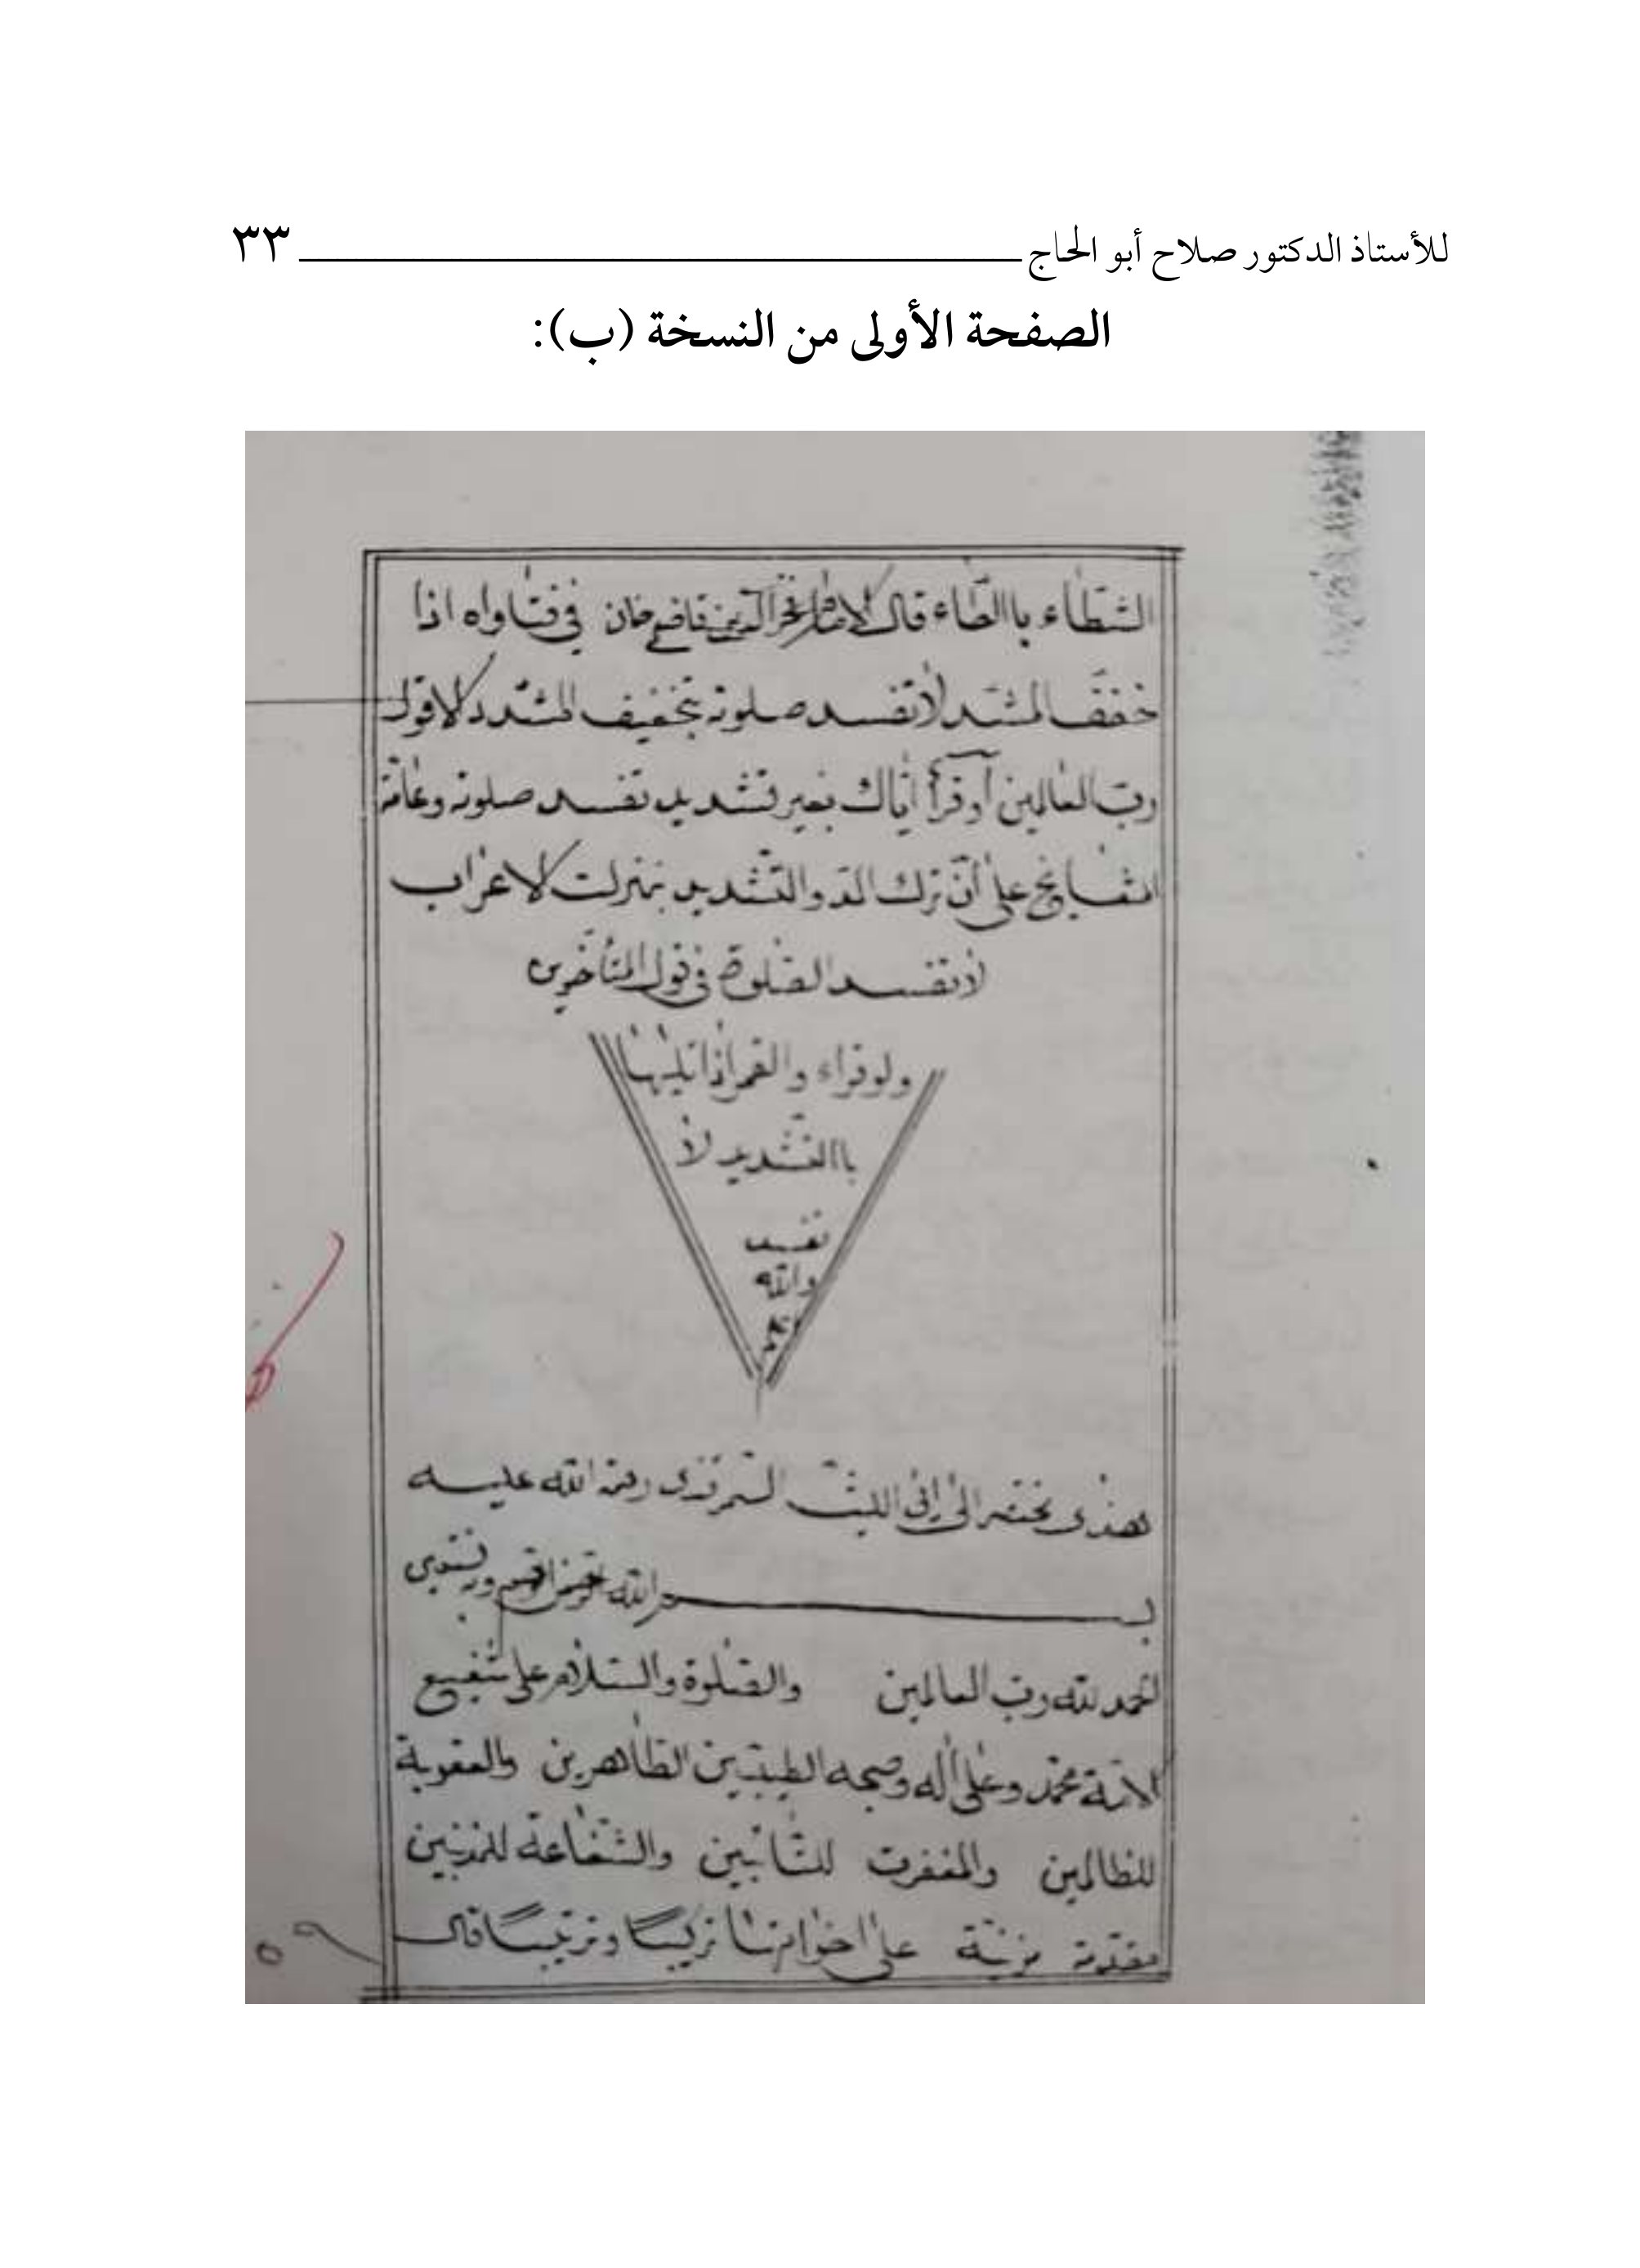 للأستاذ الدكتور صلاح أبو الحاج ٣٣
الصفحة الأولى من النسخة (ب):
الشطاء باالطاء قال الامام فخر الدين قاضي خان في فتاواه اذا
خفف المشدد لا تفسد صلوته بتخفيف المشدد الا قوله
رب العالمين او قرأ اياك بغير تشديد تفسد صلوته وعامة
المشايخ على ان ترك المد والتشديد بمنزلت الاعراب
لا تفسد الصلوة في قول المتأخرين
ولو قراء والقمر اذا تليها
باالتشديد لا
تفسد
والله
اعلم
الى ابى الليث السمرقندى رحمة الله عليه
بسم الله الرحمن الرحيم وبه نستعين
الحمد لله رب العالمين والصلوة والسلام على شفيع
الامة محمد وعلى اله وصحبه الطيبين الطاهرين والعقوبة
للظالمين والمغفرت للتائبين والشفاعة للمذنبين
مقدمة مزينة على اخواتها تركيبا وترتيبا قال